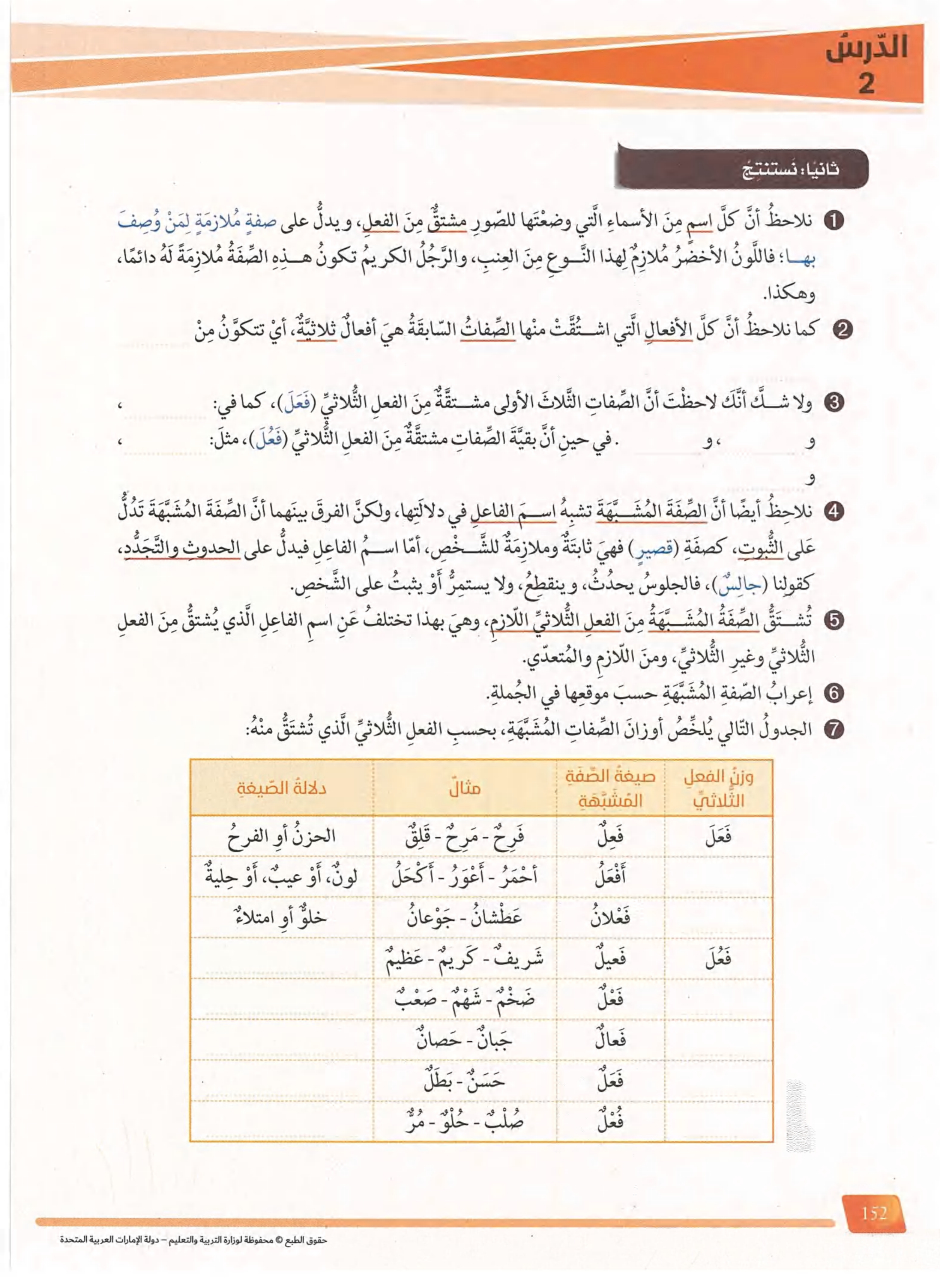 الدّرسُ
2
ثانيًا: نَستنتِجُ
1 نلاحظُ أنَّ كلَّ اسمٍ مِنَ الأسماءِ الَّتي وضعْتَها للصّورِ مشتقٌّ مِنَ الفعلِ، ويدلُّ على صفةٍ مُلازمَةٍ لِمَنْ وُصِفَ
بهـا؛ فاللَّونُ الأخضرُ مُلازمٌ لِهذا النَّـوعِ مِنَ العِنبِ، والرَّجُلُ الكريمُ تكونُ هـذِهِ الصِّفَةُ مُلازِمَةً لَهُ دائمًا،
وهكذا.
2 كما نلاحظُ أنَّ كلَّ الأفعالِ الَّتي اشـتُقَّتْ منْها الصِّفاتُ السّابقَةُ هيَ أفعالٌ ثلاثيَّةٌ، أيْ تتكوَّنُ مِنْ
3 ولا شـكَّ أنَّكَ لاحظْتَ أنَّ الصِّفاتِ الثَّلاثَ الأولى مشـتقَّةٌ مِنَ الفعلِ الثُّلاثيِّ (فَعَلَ)، كما في: ،
و ، و . في حينِ أنَّ بقيَّةَ الصِّفاتِ مشتقَّةٌ مِنَ الفعلِ الثُّلاثيِّ (فَعُلَ)، مثلَ: ،
و
4 نلاحظُ أيضًا أنَّ الصِّفَةَ المُشَـبَّهَةَ تشبِهُ اسـمَ الفاعلِ في دلالَتِها، ولكنَّ الفرقَ بينَهما أنَّ الصِّفَةَ المُشَبَّهَةَ تَدُلُّ
عَلى الثُّبوتِ، كصفَةِ (قصيرٍ) فهيَ ثابتَةٌ وملازمَةٌ للشَّـخْصِ، أمّا اسـمُ الفاعلِ فيدلُّ على الحدوثِ والتَّجَدُّدِ،
كقولِنا (جالِسٌ)، فالجلوسُ يحدُثُ، وينقطِعُ، ولا يستمِرُّ أوْ يثبتُ على الشَّخصِ.
5 تُشـتَقُّ الصِّفَةُ المُشَـبَّهَةُ مِنَ الفعلِ الثُّلاثيِّ اللّازمِ، وهيَ بهذا تختلفُ عَنِ اسمِ الفاعِلِ الَّذي يُشتقُّ مِنَ الفعلِ
الثُّلاثيِّ وغيرِ الثُّلاثيِّ، ومنَ اللّازمِ والمُتعدّي.
6 إعرابُ الصّفةِ المُشَبَّهَةِ حسبَ موقعِها في الجُملةِ.
7 الجدولُ التّالي يُلخِّصُ أوزانَ الصِّفاتِ المُشَبَّهَةِ، بحسبِ الفعلِ الثُّلاثيِّ الَّذي تُشتَقُّ منْهُ:
وزنُ الفعلِ الثُّلاثيِّ صيغةُ الصِّفَةِ المُشَبَّهَةِ مثالٌ دلالةُ الصّيغةِ
فَعَلَ فَعِلٌ فَرِحٌ - مَرِحٌ - قَلِقٌ الحزنُ أوِ الفرحُ
أَفْعَلُ أحْمَرُ - أَعْوَرُ - أكْحَلُ لونٌ، أَوْ عيبٌ، أَوْ حِليةٌ
فَعْلانُ عَطْشانُ - جَوْعانُ خلوٌّ أو امتلاءٌ
فَعُلَ فَعيلٌ شَريفٌ - كَريمٌ - عَظيمٌ
فَعْلٌ ضَخْمٌ - شَهْمٌ - صَعْبٌ
فَعالٌ جَبانٌ - حَصانٌ
فَعَلٌ حَسَنٌ - بَطَلٌ
فُعْلٌ صُلْبٌ - حُلْوٌ - مُرٌّ
152
حقوق الطبع © محفوظة لوزارة التربية والتعليم – دولة الإمارات العربية المتحدة